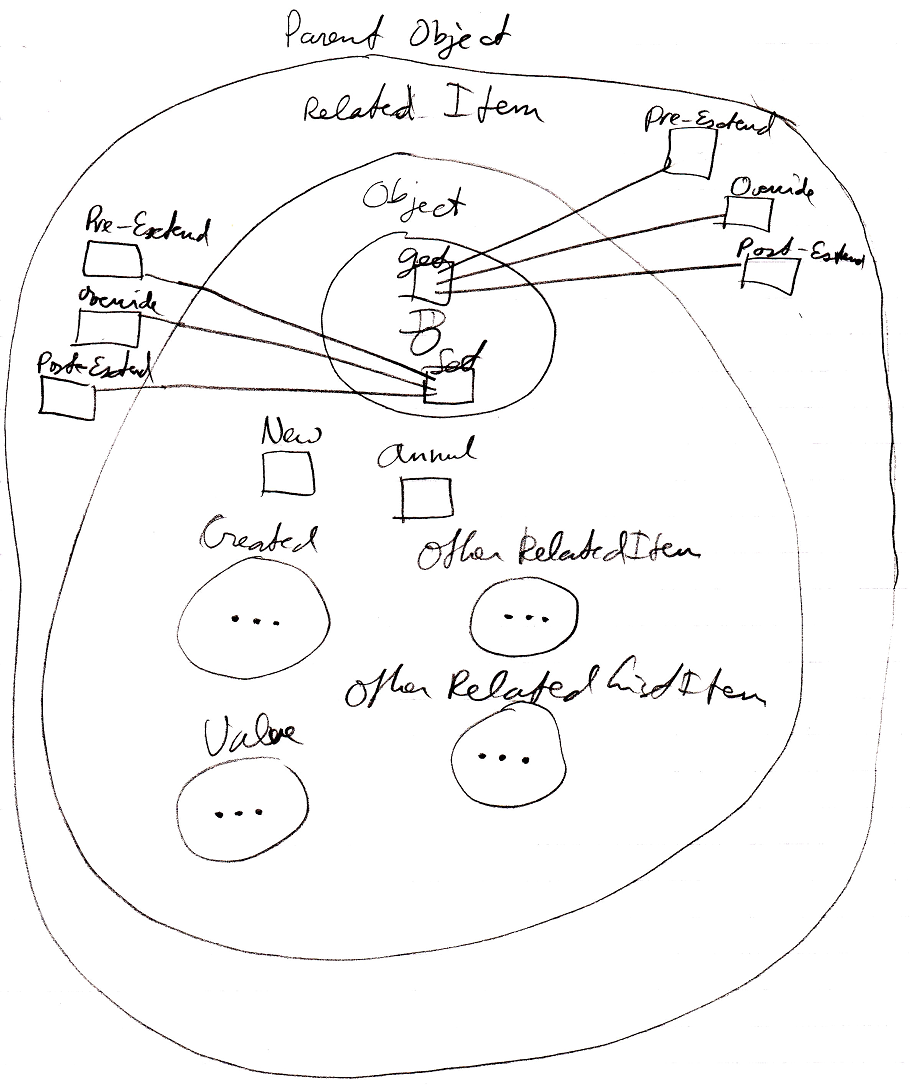 Parent Object
Related Item
Pre-Extend
Object
Override
Pre-Extend
Get
Post-Extend
Override
Set
Post-Extend
New
Annul
Created
Other RelatedItem
...
...
Other RelatedListItem
Value
...
...